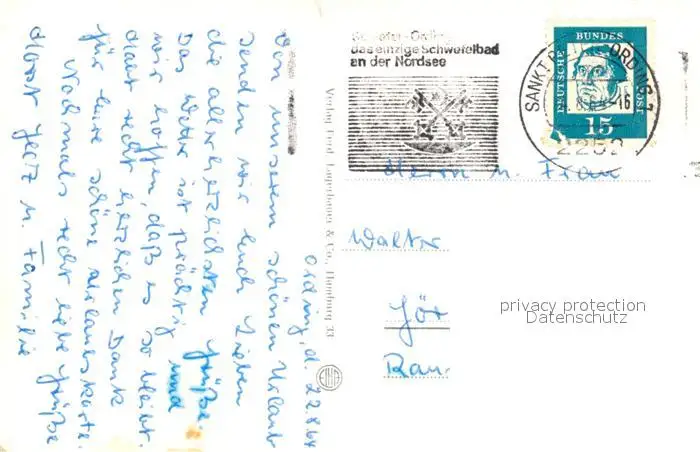 Ording, d. 22.8.64
Von unserem schönen Urlaub
senden wir Euch Lieben
die allerherzlichsten Grüße.
Das Wetter ist prächtig und
wir hoffen, daß es so bleibt.
Habt recht herzlichen Dank
für Eure schöne Urlaubskarte.
Nochmals recht liebe Grüße
Horst Jeltz u. Familie
Verlag Ferd. Lagerbauer & Co., Hamburg 33
das einzige Schwefelbad
an der Nordsee
SANKT ORDING 1
2252
DEUTSCHE BUNDESPOST
15
Herrn u. Frau
Walter
privacy protection
Datenschutz